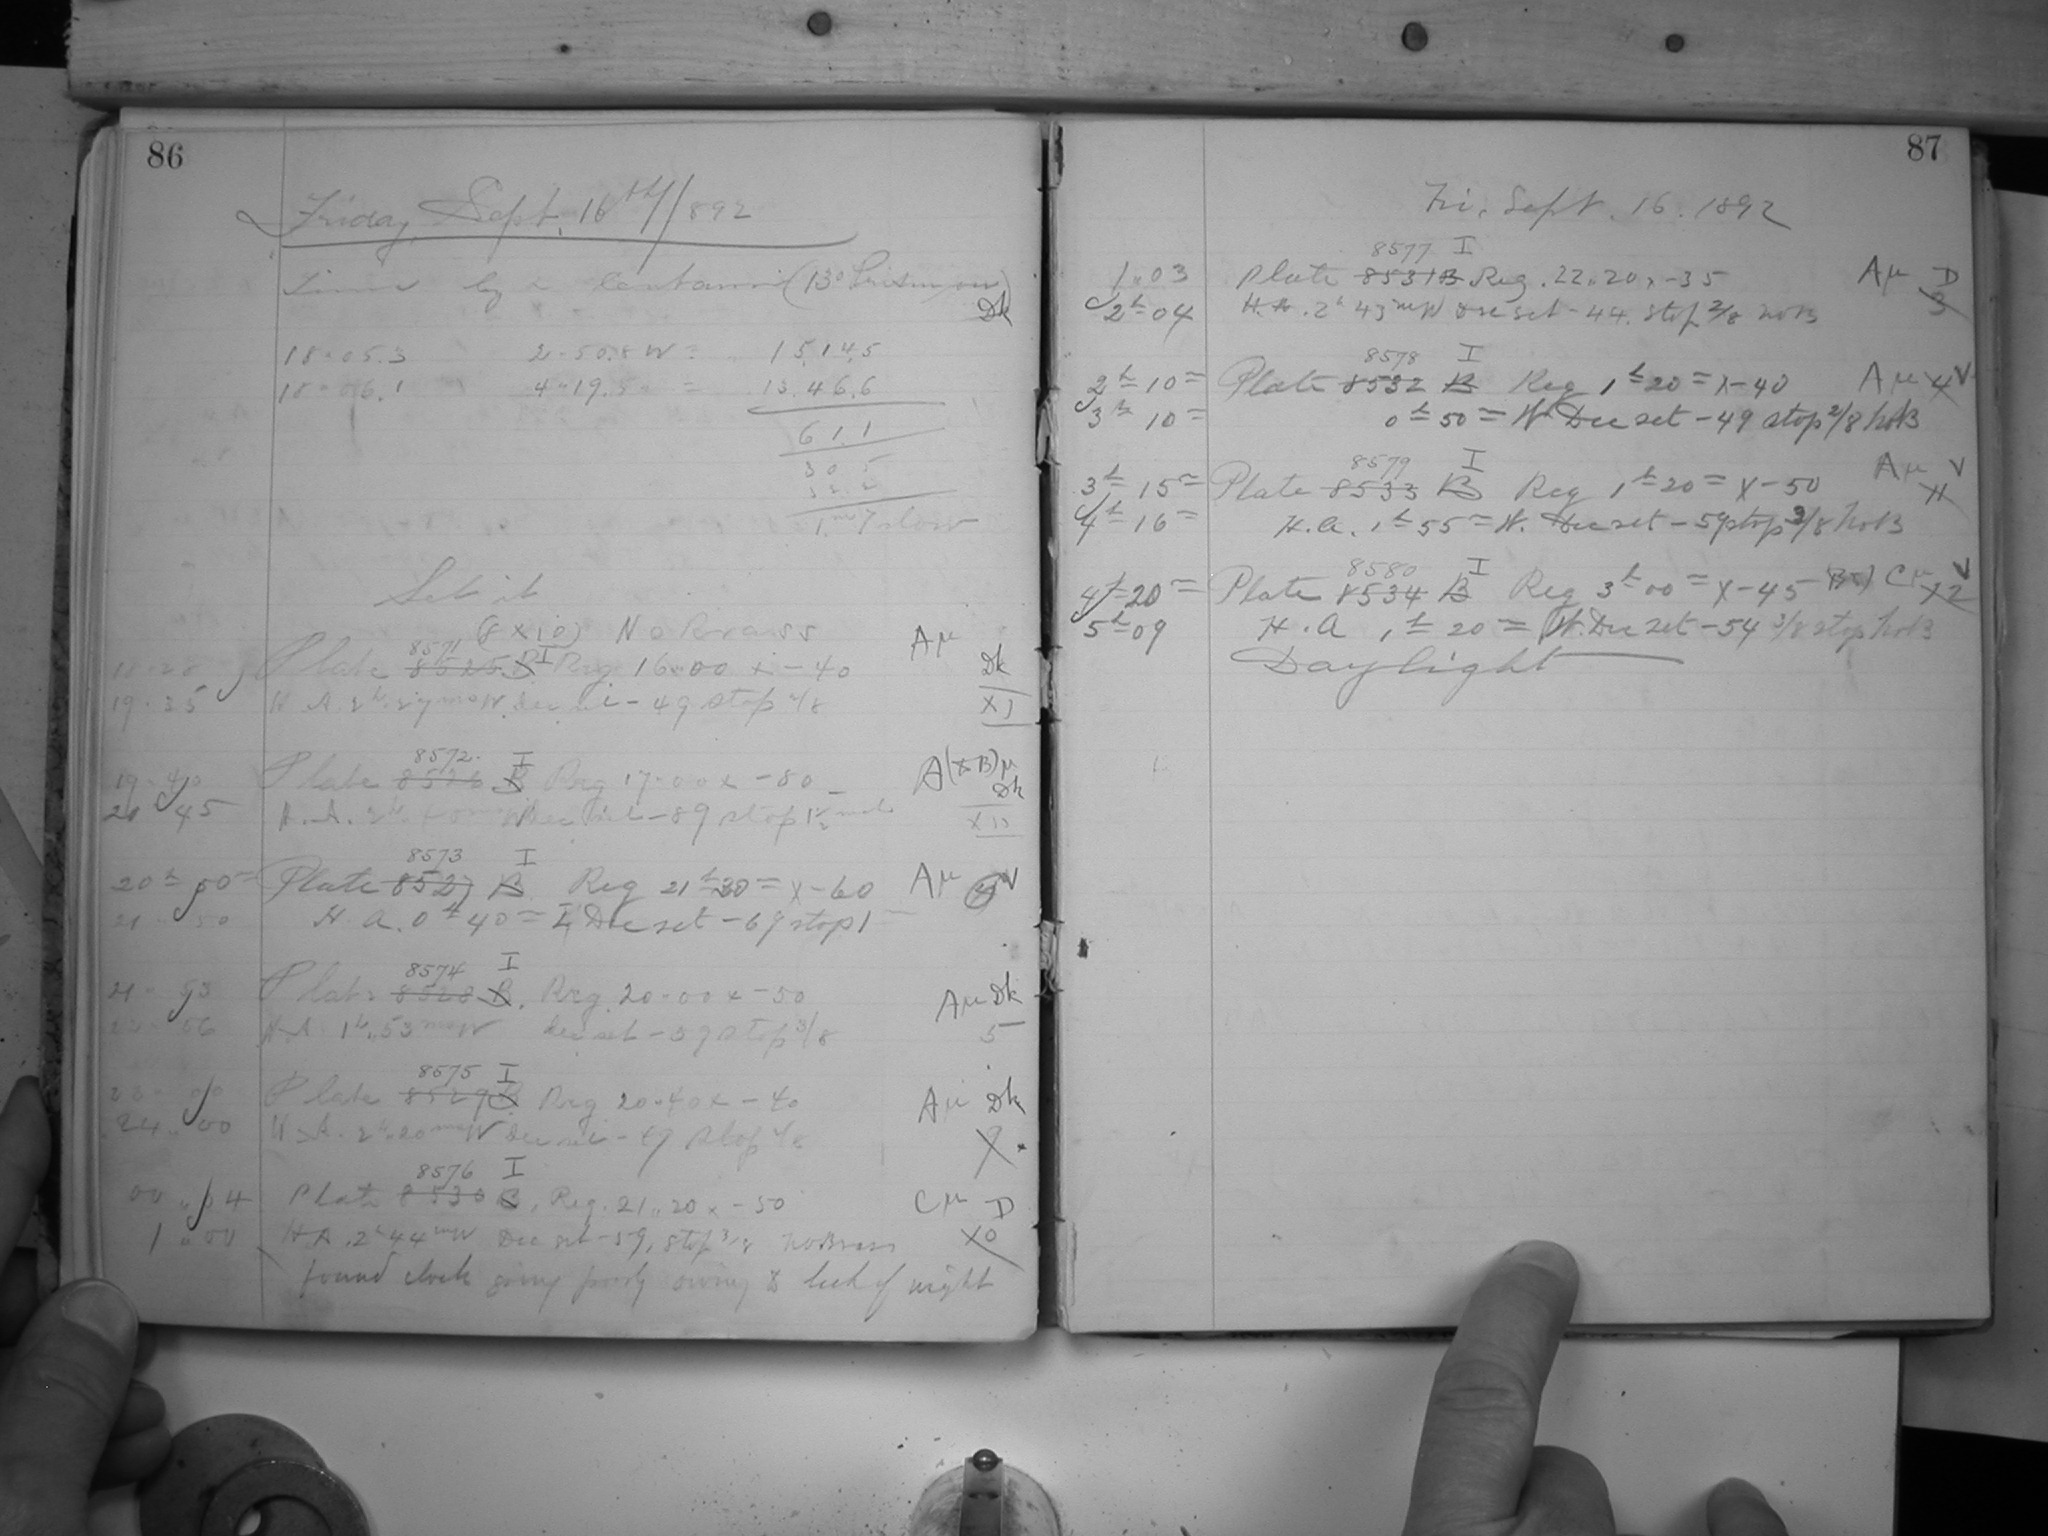 86
Friday, Sept. 16th/1892
Time by α Centauri (13° Prism on)
Dk
18 05.3 2 50.8 W = 15,14.5
18 06.1 4 19.5 = 13.46.6
61.1
30 5
1.m7 slow
Set it
(8 x 10) No Brass
8571 I Aμ
18 28 Plate 8525 B Reg 16 00 x - 40 Dk
19 35 H.A. 2h 29mos W. Dec set - 49 stop 2/8 XI
8572 I
19 40 Plate 8526 B Reg 17 00 x - 80 A(XB)μ Dk
20 45 H.A. 2h W Dec set - 89 stop 1 1/2
8573 I
20h 50m Plate 8527 B Reg 21h 30m x - 60 Aμ V
21 50 H.A. 0h 40m E Dec set - 69 stop 1
8574 I
21 53 Plate 8528 B. Reg 20 00 x - 50 Aμ Dk
H.A. 1h 53mos W dec set - 59 stop 3/8 5
8575 I
Plate 8529 B Reg 20 40 x - 40 Aμ Dk
24 00 H.A. 2h 20mos W dec set - 49 stop
8576 I
00 04 Plate 8530 B, Reg. 21 20 x - 50 Cμ D
1 00 H.A. 2h 44m W Dec set - 59, stop 3/8 no Brass X0
found clock going poorly owing to lack of weight
87
Fri. Sept. 16. 1892
8577 I
1 03 Plate 8531 B Reg. 22 20 x - 35 Aμ D
2h 04 H.A. 2h 43m W Dec set - 44. stop 3/8 no B 3
8578 I
2h 10m Plate 8532 B Reg 1h 20m x - 40 Aμ 4 V
3h 10m 0h 50m W Dec set - 49 stop 2/8 no B
8579 I
3h 15m Plate 8533 B Reg 1h 20m x - 50 Aμ V
4h 16m H.A. 1h 55m W. Dec set - 59 stop 3/8 no B
8580 I
4h 20m Plate 8534 B Reg 3h 00m x - 45 Cμ V
5h 09 H.A 1h 20m W. Dec set - 54 3/8 stop no B
Daylight